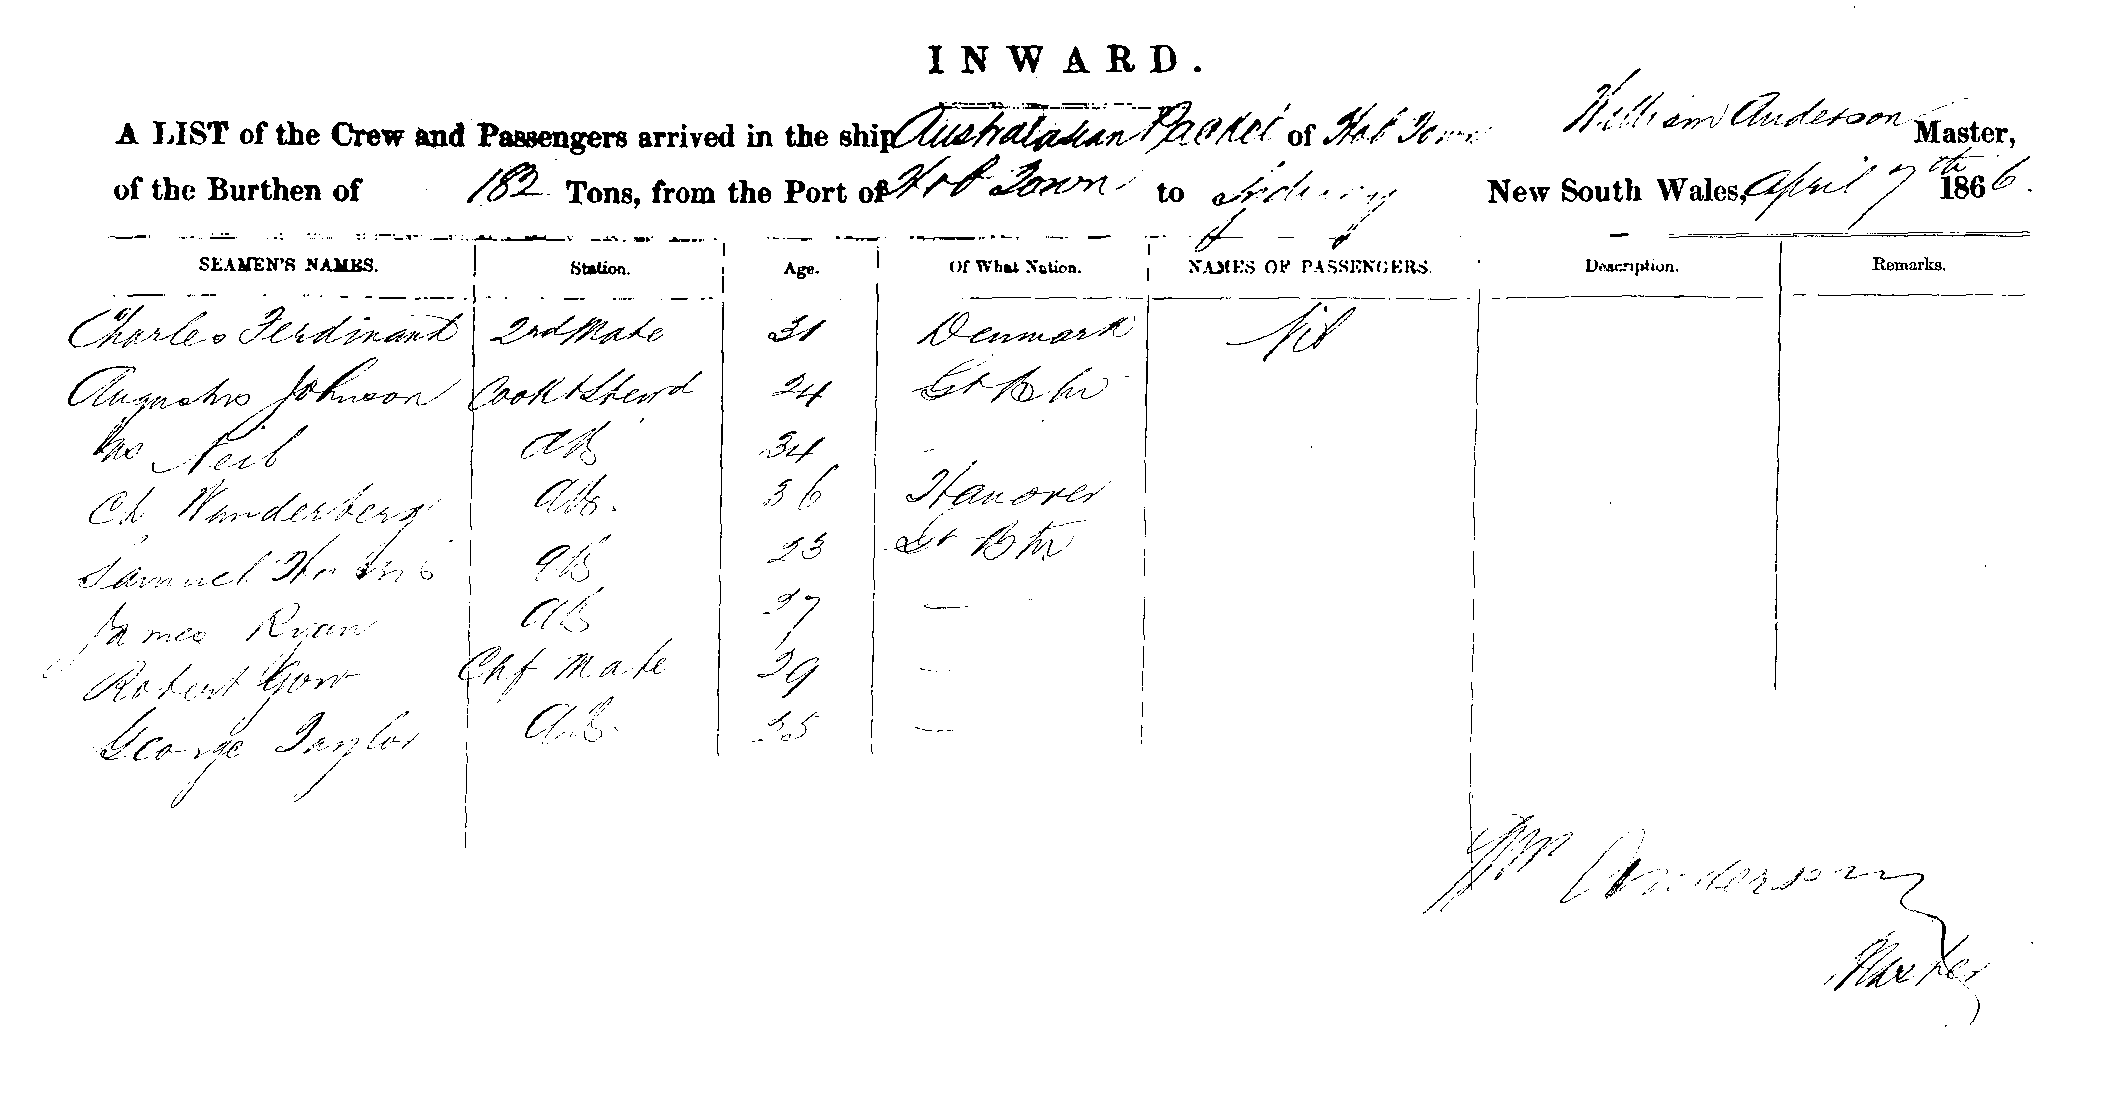 INWARD.
A LIST of the Crew and Passengers arrived in the ship Australasian Packet of Hob Town William Anderson Master,
of the Burthen of 182 Tons, from the Port of Hob Town to Sydney New South Wales, April 7th 1866.
SEAMEN'S NAMES. Station. Age. Of What Nation. NAMES OF PASSENGERS. Description. Remarks.
Charles Ferdinand 2nd Mate 31 Denmark Nil
Augustus Johnson Cook & Stewd 24 Gt Btn
Neil AB 34
Ch Wanderberg AB. 36 Hanover
Samuel AB 23 Gt Btn
James Ryan AB 27 —
Robert Gow Chf Mate 29 —
George Taylor AB. 25 —
Wm Anderson
Master